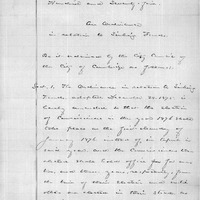 Hundred and Seventy-five.
An Ordinance
in relation to Sinking Funds.
Be it ordained by the City Council of
the City of Cambridge as follows:
Sect. 1. The Ordinance in relation to Sinking
Funds, adopted December
hereby amended so that the election
of Commissioners in the year 1876 shall
take place on the first
January 1876 instead of in
said year, and the Commissioners then
elected shall hold office for for one
two and three years, respectively, from
the of their election and until
others are elected in their stead as